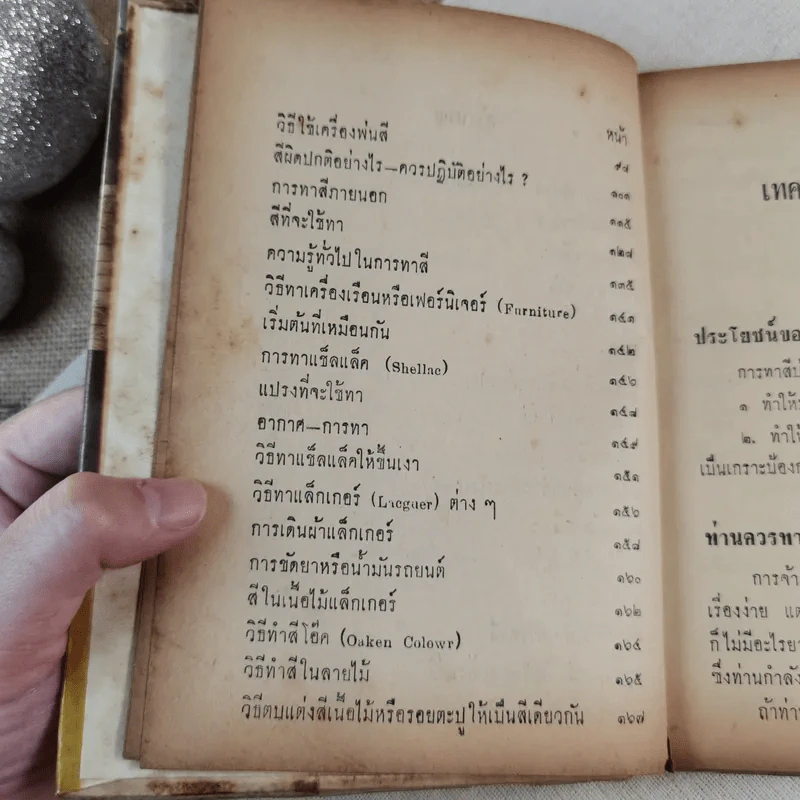 หน้า
วิธีใช้เครื่องพ่นสี ๙๘
สีผิดปกติอย่างไร—ควรปฏิบัติอย่างไร ? ๑๐๑
การทาสีภายนอก ๑๑๕
สีที่จะใช้ทา ๑๒๘
ความรู้ทั่วไปในการทาสี ๑๓๕
วิธีทาเครื่องเรือนหรือเฟอร์นิเจอร์ (Furniture) ๑๔๑
เริ่มต้นที่เหมือนกัน ๑๔๒
การทาแช็ลแล็ค (Shellac) ๑๔๖
แปรงที่จะใช้ทา ๑๔๘
อากาศ—การทา ๑๔๙
วิธีทาแช็ลแล็คให้ขึ้นเงา ๑๕๑
วิธีทาแล็กเกอร์ (Lacguer) ต่าง ๆ ๑๕๖
การเดินผ้าแล็กเกอร์ ๑๕๘
การขัดยาหรือน้ำมันรถยนต์ ๑๖๐
สีในเนื้อไม้แล็กเกอร์ ๑๖๒
วิธีทำสีโอ๊ค (Oaken Colowr) ๑๖๔
วิธีทำสีในลายไม้ ๑๖๕
วิธีตบแต่งสีเนื้อไม้หรือรอยตะปูให้เป็นสีเดียวกัน ๑๖๗
เทค
ประโยชน์ขอ
การทาสีป
๑ ทำให้
๒. ทำให้
เป็นเกราะป้องก
ท่านควรทา
การจ้า
เรื่องง่าย แต
ก็ไม่มีอะไรยา
ซึ่งท่านกำลัง
ถ้าท่า